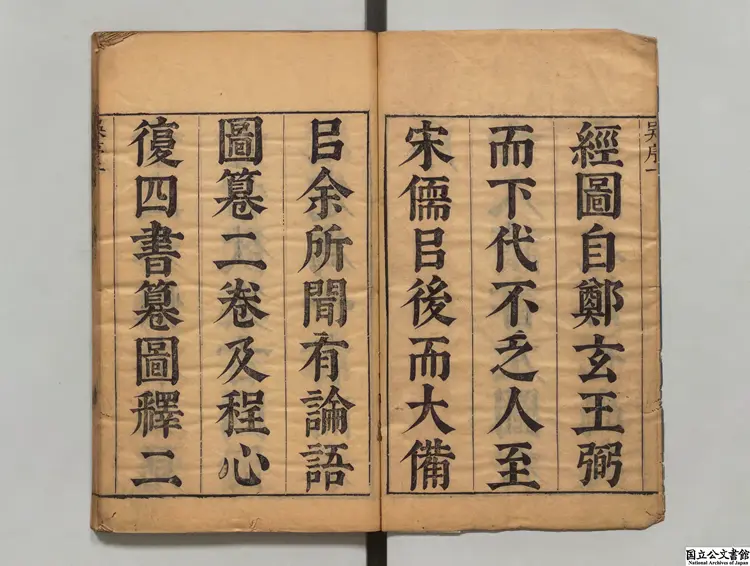 吳序一
經圖自鄭玄王弼
而下代不乏人至
宋儒㠯後而大備
㠯余所聞有論語
圖纂二卷及程心
復四書纂圖釋二
吳序一
国立公文書館
National Archives of Japan